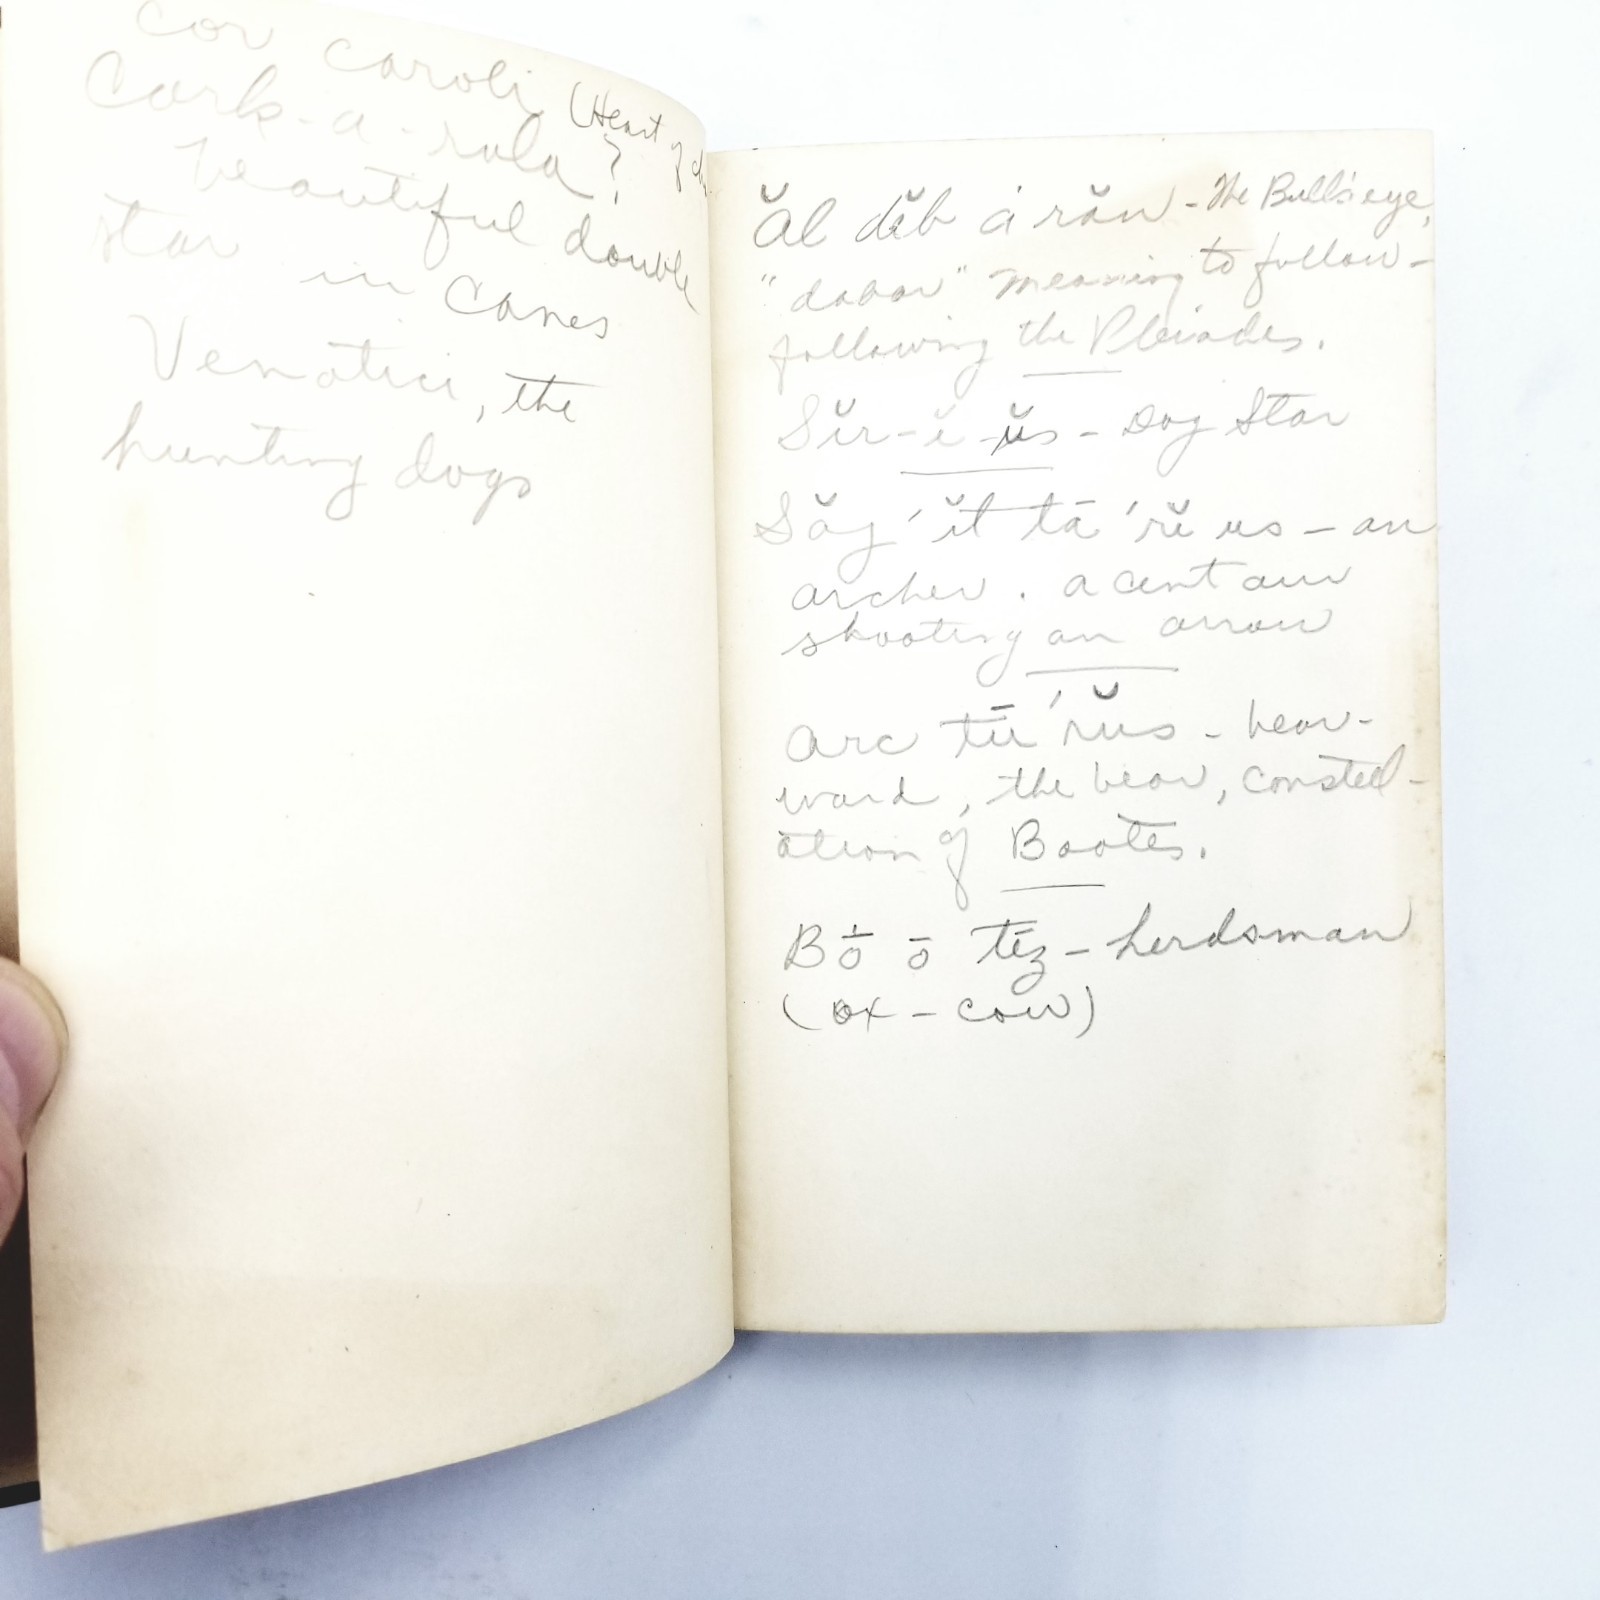 cor caroli (Heart of
Cark-a-rola?
beautiful double
star in Canes
Venatici, the
hunting dogs
Ăl dĕb á răn - The Bull's eye,
"dabar" meaning to follow -
following the Pleiades.
Sĭr-ĭ-ŭs - Dog Star
Săg ′ ĭt tā ′ rĭ us - an
archer. a centaur
shooting an arrow
Arc tū ′ rŭs - bear-
ward, the bear, constell-
ation of Bootes.
Bō ō tēz - herdsman
(ox - cow)